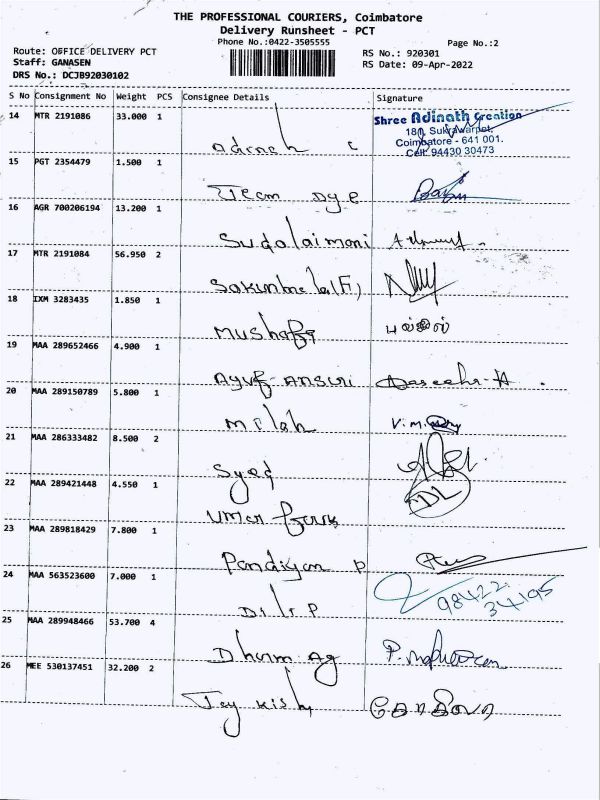 THE PROFESSIONAL COURIERS, Coimbatore
Delivery Runsheet - PCT
Phone No.:0422-3505555
Page No.:2
Route: OFFICE DELIVERY PCT
RS No.: 920301
Staff: GANASEN
RS Date: 09-Apr-2022
DRS No.: DCJB92030102
S No Consignment No Weight PCS Consignee Details Signature
14 MTR 2191086 33.000 1
Shree Adinath Creation
180, Sukrawarpet,
Coimbatore - 641 001.
Cell: 94430 30473
15 PGT 2354479 1.500 1
Team Dye
16 AGR 700206194 13.200 1
Sudalaimani
17 MTR 2191084 56.950 2
18 IXM 3283435 1.850 1
19 MAA 289652466 4.900 1
20 MAA 289150789 5.800 1
V. M.
21 MAA 286333482 8.500 2
Syed
22 MAA 289421448 4.550 1
DL
Umar
23 MAA 289818429 7.800 1
Pandiyan P
24 MAA 563523600 7.000 1
98422
34195
Dilip
25 MAA 289948466 53.700 4
Dharm Ag
26 MEE 530137451 32.200 2
Jay